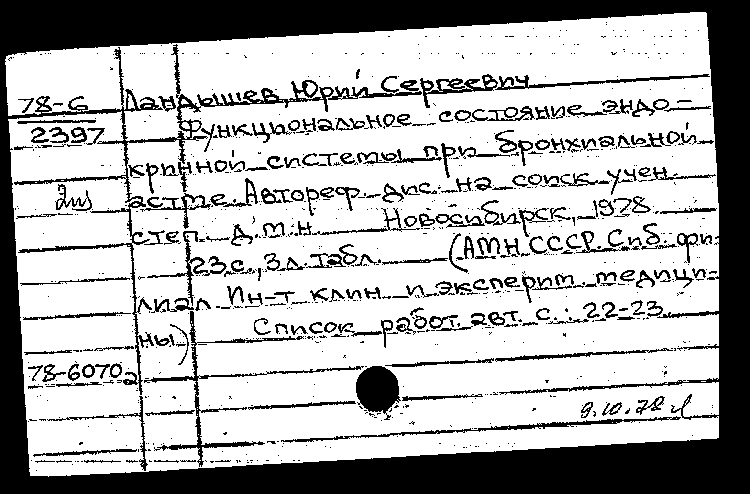 78-6
2397
Ландышев, Юрий Сергеевич
Функциональное состояние эндо-
кринной системы при бронхиальной
астме. Автореф. дис. на соиск. учен.
степ. д.м.н. Новосибирск, 1978.
23 с., 3 л. табл. (АМН СССР. Сиб. фи-
лиал. Ин-т клин. и эксперим. медици-
ны)
Список работ авт. с.: 22-23.
78-6070
9.10.78